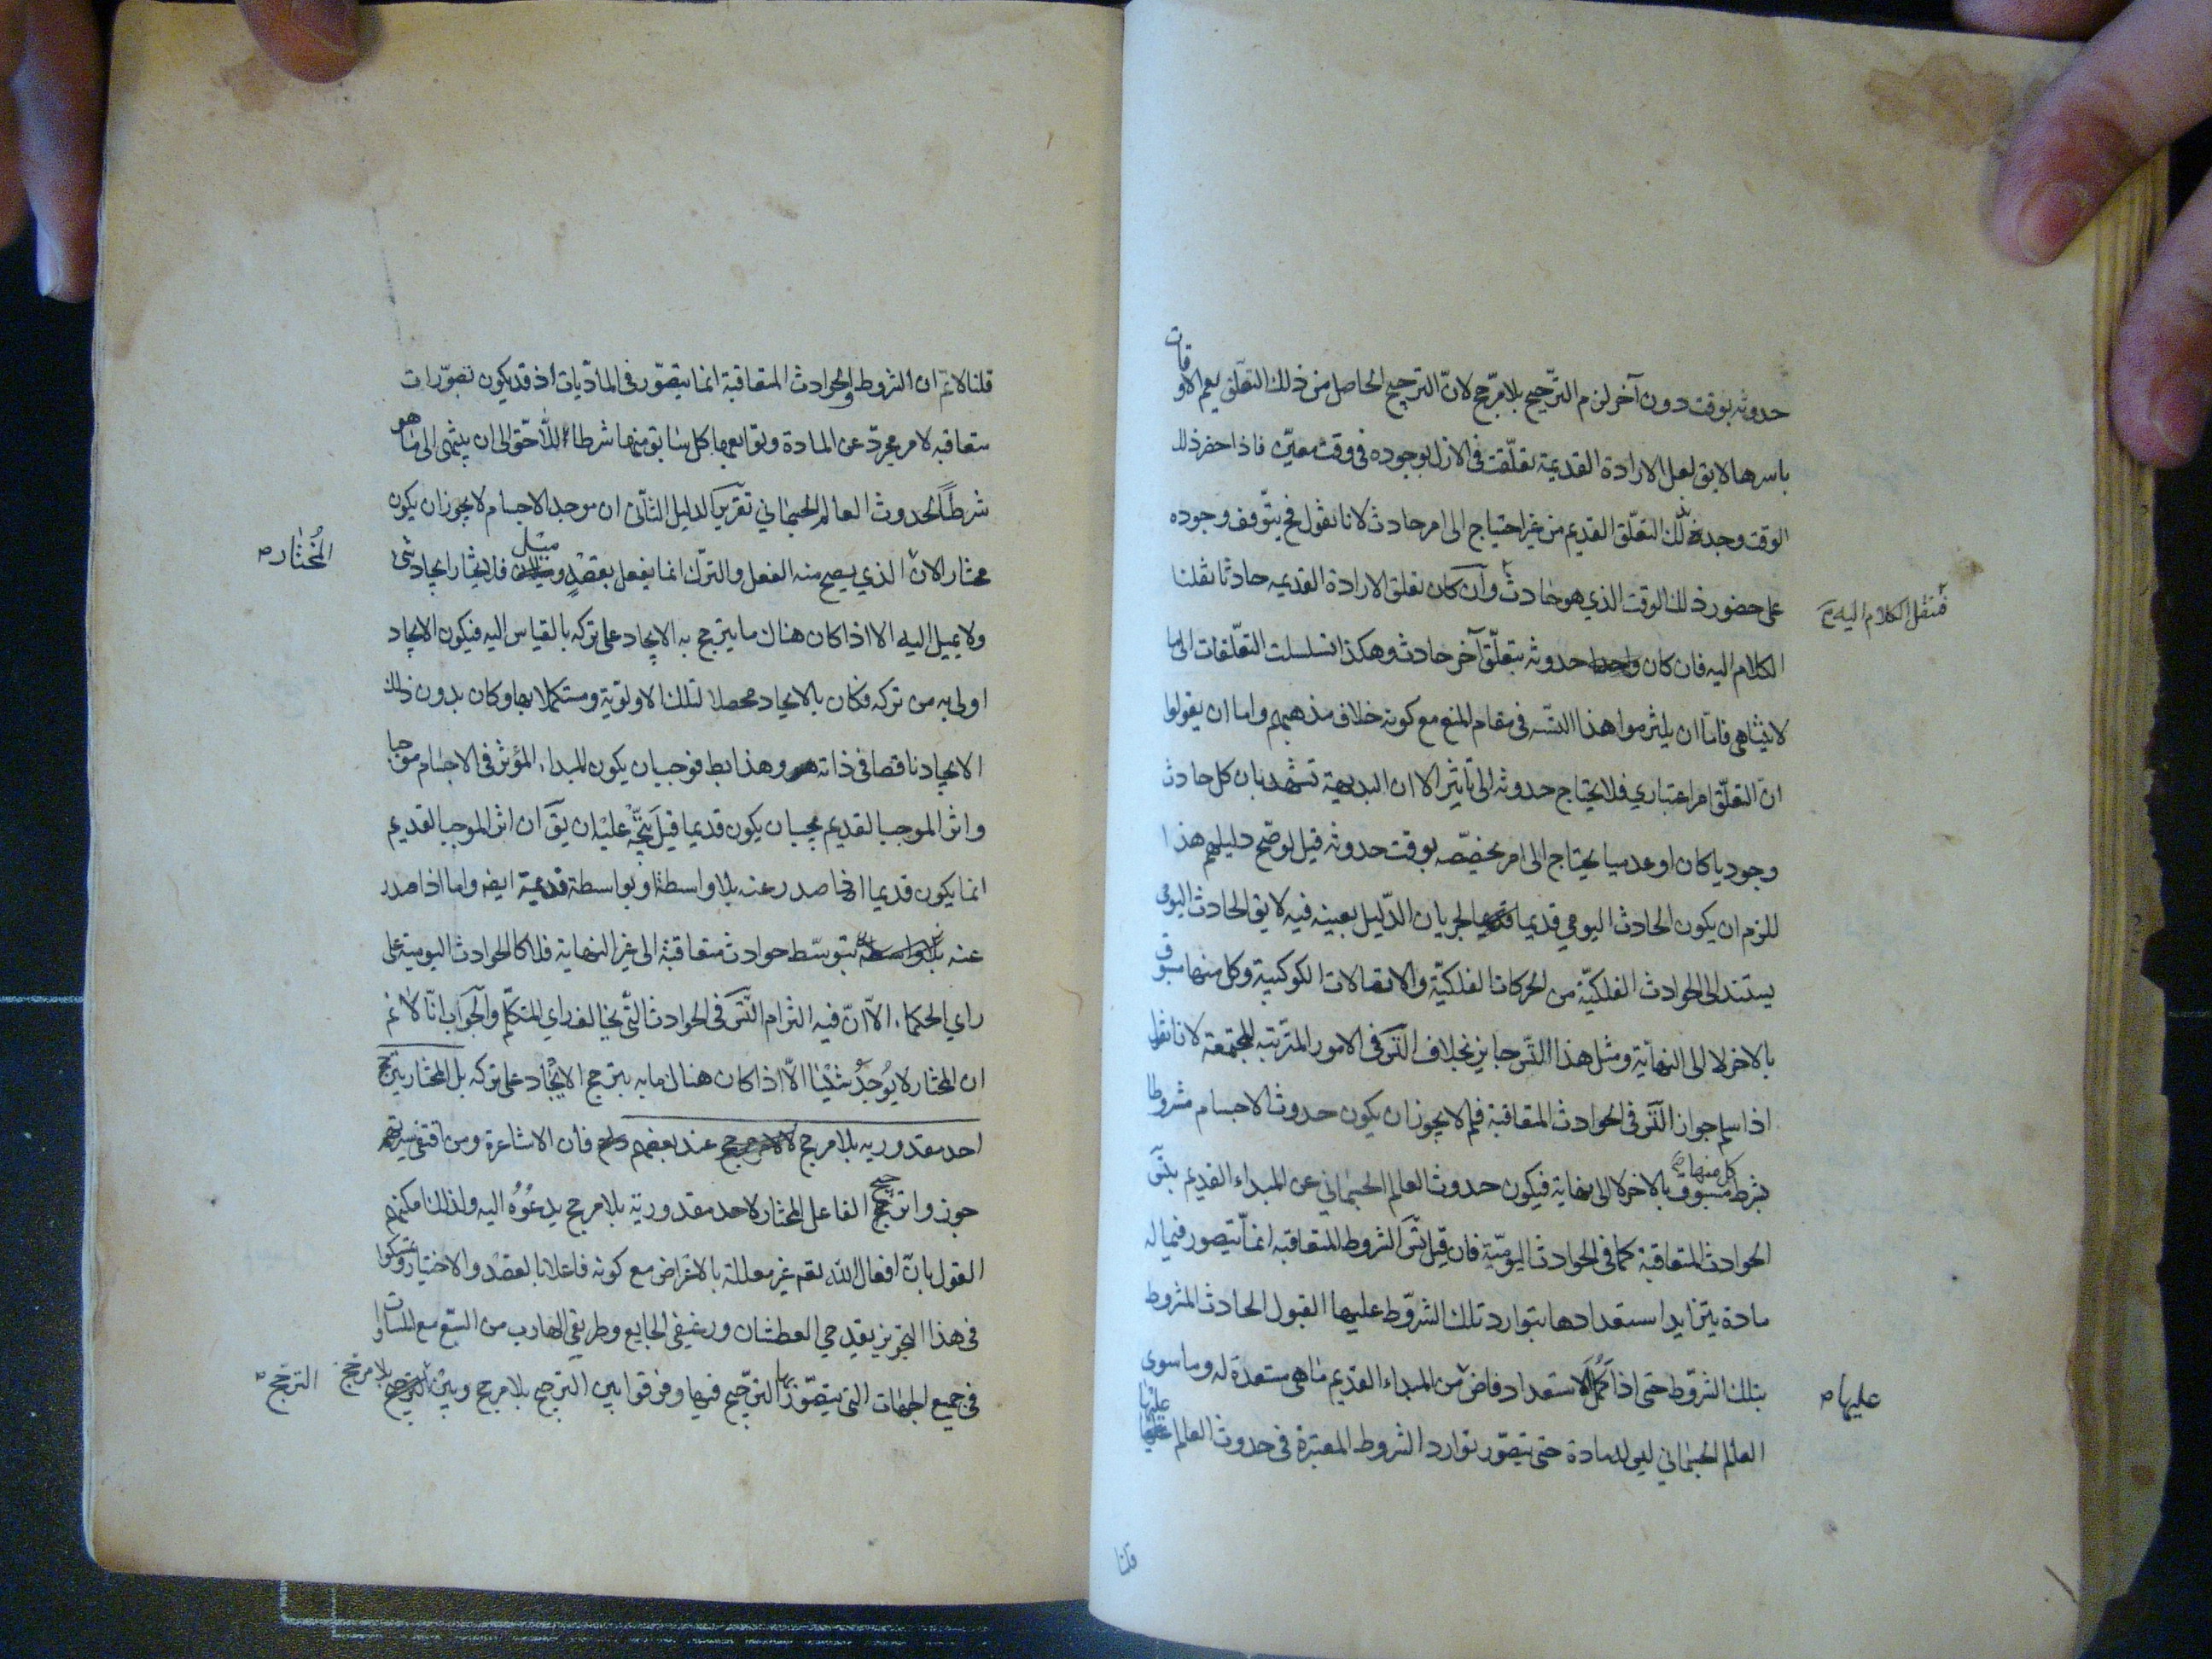 حدوثه بوقت دون آخر لزم الترجيح بلا مرجح لان الترجيح الحاصل من ذلك التعلق يعم الاوقات
باسرها لا يق لعل الارادة القديمة تعلقت في الازل بوجوده في وقت معين فاذا حضر ذلك
الوقت وجد بذلك التعلق القديم من غير احتياج الى امر حادث لانا نقول فح يتوقف وجوده
على حضور ذلك الوقت الذي هو حادث وان كان تعلق الارادة القديمه حادثا نقلنا
فننقل الكلام اليه
الكلام اليه فان كان حدوثه بتعلق آخر حادث وهكذا تسلسلت التعلقات الى ما
لا يتناهى فاما ان يلتزموا هذا التسـ في مقام المنع مع كونه خلاف مذهبهم واما ان يقولوا
ان التعلق امر اعتباري فلا يحتاج حدوثه الى تأثير الا ان البديهة تشهد بان كل حادث
وجوديا كان او عدميا يحتاج الى امر يخصصه بوقت حدوثه قيل لو صح دليلهم هذا
للزم ان يكون الحادث اليومي قديما لجريان الدليل بعينه فيه لا يق الحادث اليومي
يستند الى الحوادث الفلكية من الحركات الفلكية والاتصالات الكوكبية وكل منها مسبوق
بالاخر لا الى النهاية ومثل هذا التس جايز بخلاف التس في الامور المترتبه المجتمعة لانا نقول
اذا سلم جواز التس في الحوادث المتعاقبة فلم لا يجوز ان يكون حدوث الاجسام مشروطا
بشرط كل منها مسبوق بالاخر لا الى نهاية فيكون حدوث العالم الجسماني عن المبداء القديم
الحوادث المتعاقبة كما في الحوادث اليومية فان قيل تس الشروط المتعاقبه انما يتصور فيما له
مادة يتزايد استعدادها بتوارد تلك الشروط عليها القبول الحادث المشروط
بتلك الشروط حتى اذا كمل الاستعداد فاض من المبداء القديم ما هي مستعدة له وما سوى
عليها
العالم الجسماني ليس له مادة حتى يتصور توارد الشروط المعتبرة في حدوث العالم عليها
قلنا
قلنا لانم ان الشروط والحوادث المتعاقبة انما يتصور في الماديات اذ قد يكون تصورات
متعاقبه لامر مجرد عن المادة وتوابعها كل سابق منها شرطا للاحق الى ان ينتهى الى ما هو
شرطا لحدوث العالم الجسماني تقرير الدليل الثاني ان موجد الاجسام لا يجوز ان يكون
مختارا لان الذي يصح منه الفعل والترك انما يفعل بقصد وميل فلا يختار ايجاد شئ
المختار
ولا يميل اليه الا اذا كان هناك ما يترجح به الايجاد على تركه بالقياس اليه فيكون الايجاد
اولى به من تركه فكان بالايجاد محصلا لتلك الاولوية ومستكملا بها وكان بدون ذلك
الايجاد ناقصا في ذاته وهذا بط فوجب ان يكون المبداء المؤثر في الاجسام موجبا
واثر الموجب القديم يجب ان يكون قديما قيل يتجه عليه ان يق ان اثر الموجب القديم
انما يكون قديما اذا صدر عنه بلا واسطة او بواسطة قديمة ايضه واما اذا صدر
عنه بتوسط حوادث متعاقبة الى غير النهاية فلا كالحوادث اليومية على
راي الحكماء الا ان فيه التزام التس في الحوادث التي يخالف راي المتكلم والجواب انا لا نم
ان المختار لا يوجد شيئا الا اذا كان هناك ما به يترجح الايجاد على تركه بل المختار يرجح
احد مقدوريه بلا مرجح عند بعضهم فان الاشاعرة ومن اقتفى
جوزوا ترجيح الفاعل المختار لاحد مقدوريه بلا مرجح يدعوه اليه ولذلك مكنهم
القول بان افعال الله تعم غير معللة بالاغراض مع كونه فاعلا بالقصد والاختيار وتمسكوا
في هذا التجويز بقدحي العطشان ورغيفي الجايع وطريقي الهارب من السبع مع التساوي
في جميع الجهات التي يتصور بها الترجيح فيها وفرقوا بين الترجيح بلا مرجح وبين الترجح بلا مرجح
الترجح